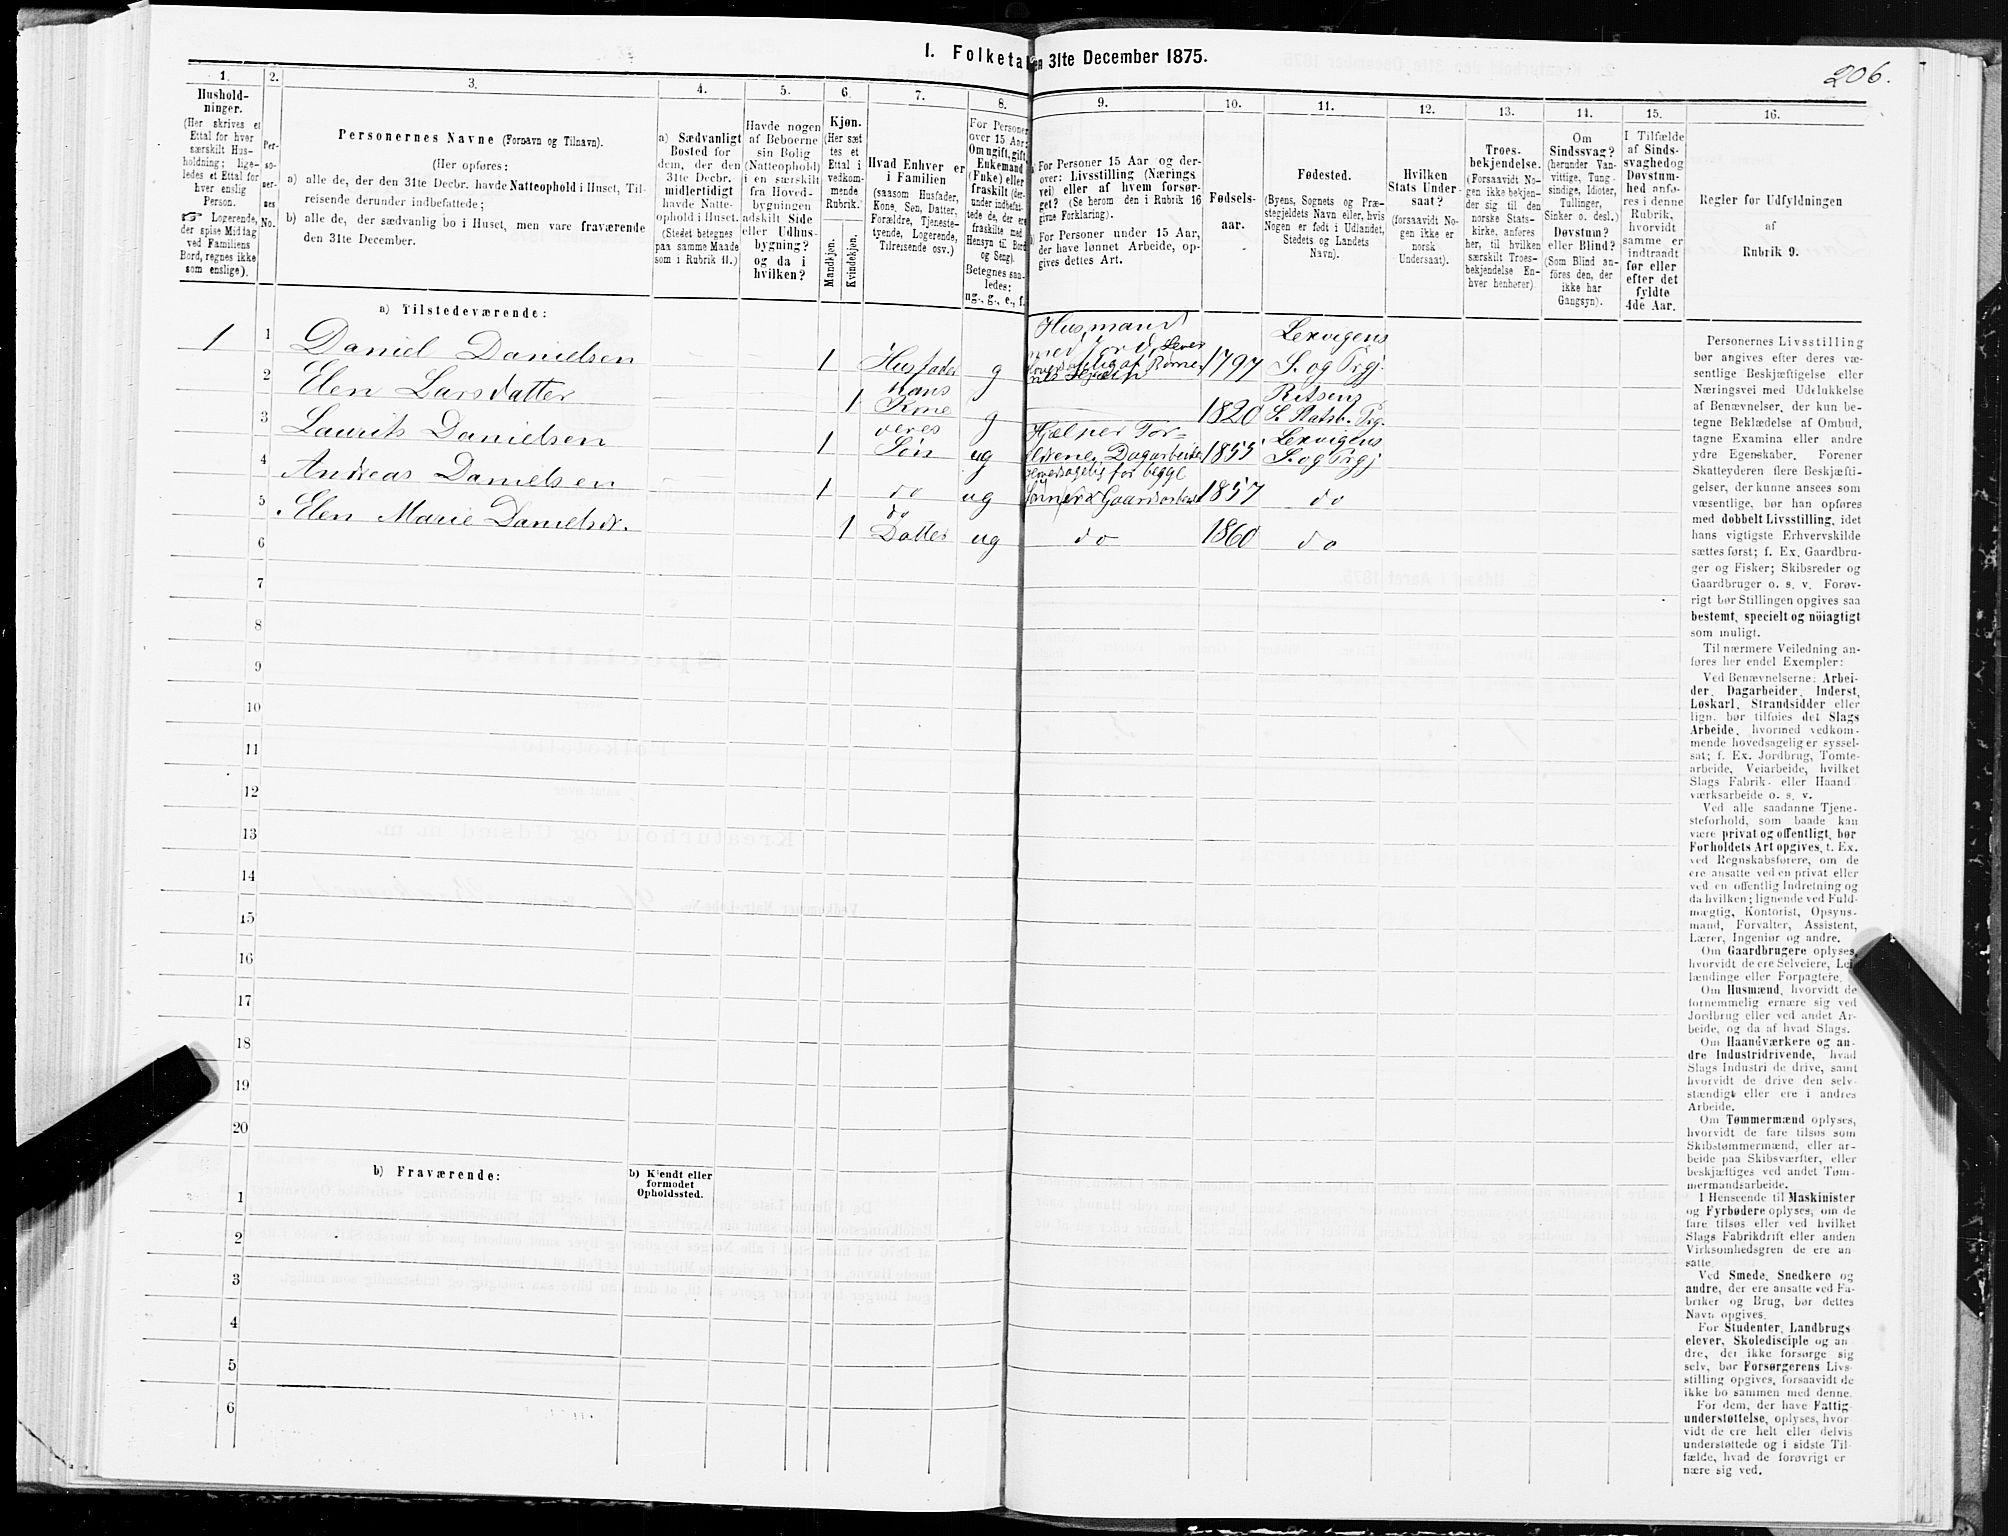 I. Folketal den 31te December 1875.
206.
1.
Hushold-
ninger.
(Her skrives et
Ettal for hver
særskilt Hus-
holdning; lige-
ledes et Ettal for
hver enslig
Person.
☞ Logerende,
der spise Middag
ved Familiens
Bord, regnes ikke
som enslige).
2.
Per-
so-
ner-
nes
No.
3.
Personernes Navne (Fornavn og Tilnavn).
(Her opføres:
a) alle de, der den 31te Decbr. havde Natteophold i Huset, Til-
reisende derunder indbefattede;
b) alle de, der sædvanlig bo i Huset, men vare fraværende
den 31te December.
4.
a) Sædvanligt
Bosted for
dem, der den
31te Decbr.
midlertidigt
havde Natte-
ophold i Huset.
(Stedet betegnes
paa samme Maade
som i Rubrik 11.)
5.
Havde nogen
af Beboerne
sin Bolig
(Natteophold)
i en særskilt
fra Hoved-
bygningen
adskilt Side
eller Udhus-
bygning?
og da i
hvilken?
6.
Kjøn.
(Her sæt
tes et
Ettal i
vedkom-
mende
Rubrik.
Mandkjøn.
Kvindekjøn.
7.
Hvad Enhver er
i Familien
(saasom Husfader,
Kone, Søn, Datter,
Forældre, Tjeneste-
tyende, Logerende,
Tilreisende osv.)
8.
For Personer
over 15 Aar:
Om ugift, gift,
Enkemand
(Enke) eller
fraskilt (der-
under indbefat-
tede de, der ere
fraskilte med
Hensyn til Bord
og Seng).
Betegnes saa-
ledes:
ug., g., e., f.
9.
a) For Personer 15 Aar og der-
over: Livsstilling (Nærings
vei) eller af hvem forsør-
get? (Se herom den i Rubrik 16
givne Forklaring).
b) For Personer under 15 Aar,
der have lønnet Arbeide, op-
gives dettes Art.
10.
Fødsels-
aar.
11.
Fødested.
(Byens, Sognets og Præ-
stegjeldets Navn eller, hvis
Nogen er født i Udlandet,
Stedets og Landets
Navn).
12.
Hvilken
Stats Under-
saat?
(forsaavidt No-
gen ikke er
norsk
Undersaat).
13.
Troes-
bekjendelse.
(Forsaavidt No-
gen ikke bekjen-
der sig til den
norske Stats-
kirke, anføres
her, til hvilken
særskilt Troes-
bekjendelse En-
hver henhører).
14.
Om
Sindssvag?
(herunder Van-
vittige, Tung-
sindige, Idioter,
Tullinger,
Sinker o. desl.)
Døvstum?
eller Blind?
(Som Blind an-
føres den, der
ikke har
Gangsyn).
15.
I Tilfælde
af Sinds-
svaghedog
Døvstum-
hed anfø-
res i denne
Rubrik,
hvorvidt
samme er
indtraadt
før eller
efter det
fyldte
4de Aar.
16.
Regler for Udfyldningen
af
Rubrik 9.
a) Tilstedeværende:
1 1 Daniel Danielsen 1 Husfader g Husmand med Jord, Lever 1797 Lexvigens S. og Prgj
2 Elen Larsdatter 1 hans Kone g 1820 Ritsens S. Statsb. Prg.
3 Laurits Danielsen 1 deres Søn ug Hjælper For- ældrene, Dagarbeider 1855 Lexvigens S. og Prgj
4 Andreas Danielsen 1 do ug Hovedsagelig for begge Sønner Gaardsarbeide 1857 do
5 Elen Marie Danielsdr. 1 do Datter ug do 1860 do
6
7
8
9
10
11
12
13
14
15
16
17
18
19
20
b) Fraværende:
b) Kjendt eller
formodet
Opholdssted.
1
2
3
4
5
6
Personernes Livsstilling
bør angives efter deres væ-
sentlige Beskjæftigelse eller
Næringsvei med Udelukkelse
af Benævnelser, der kun be-
tegne Beklædelse af Ombud,
tagne Examina eller andre
ydre Egenskaber. Forener
Skatteyderen flere Beskjæfti-
gelser, der kunne ansees som
væsentlige, bør han opføres
med dobbelt Livsstilling, idet
hans vigtigste Erhvervskilde
sættes først; f. Ex. Gaardbru-
ger og Fisker; Skibsreder og
Gaardbruger o. s. v. Forøv-
rigt bør Stillingen opgives saa
bestemt, specielt og nöiagtigt
som muligt.
Til nærmere Veiledning an-
føres her endel Exempler:
Ved Benævnelserne: Arbei-
der, Dagarbeider, Inderst,
Løskarl, Strandsidder eller
lign. bør tilføies det Slags
Arbeide, hvormed vedkom-
mende hovedsagelig er syssel-
sat; f. Ex. Jordbrug, Tomte-
arbeide, Veiarbeide, hvilket
Slags Fabrik- eller Haand
værksarbeide o. s. v.
Ved alle saadanne Tjene-
steforhold, som baade kan
være privat og offentligt, bør
Forholdets Art opgives, t. Ex.
ved Regnskabsførere, om de
ere ansatte ved en privat eller
ved en offentlig Indretning og
da hvilken; lignende ved Fuld-
mægtig, Kontorist, Opsyns-
mand, Forvalter, Assistent,
Lærer, Ingeniør og andre.
Om Gaardbrugere oplyses,
hvorvidt de ere Selveiere, Lei-
lændinge eller Forpagtere.
Om Husmænd, hvorvidt de
fornemmelig ernære sig ved
Jordbrug eller ved andet Ar-
beide, og da af hvad Slags.
Om Haandværkere og an-
dre Industridrivende, hvad
Slags Industri de drive, samt
hvorvidt de drive den selv-
stændigt eller ere i andres
Arbeide.
Om Tømmermænd oplyses,
hvorvidt de fare tilsøs som
Skibstømmermænd, eller ar-
beide paa Skibsværfter, eller
beskjæftiges ved andet Tøm-
mermandsarbeide.
I Henseende til Maskinister
og Fyrbødere oplyses, om de
fare tilsøs eller ved hvilket
Slags Fabrikdrift eller anden
Virksomhedsgren de ere an-
satte.
Ved Smede, Snedkere og
andre, der ere ansatte ved Fa-
briker og Brug, bør dettes
Navn opgives.
For Studenter, Landbrugs
elever, Skoledisciple og an-
dre, der ikke forsørge sig
selv, bør Forsørgerens Livs-
stilling opgives, forsaavidt de
ikke bo sammen med denne.
For dem, der have Fattig-
understøttelse, oplyses, hvor-
vidt de ere helt eller delvis
understøttede og i sidste Til-
fælde, hvad de forøvrigt er
nære sig ved.